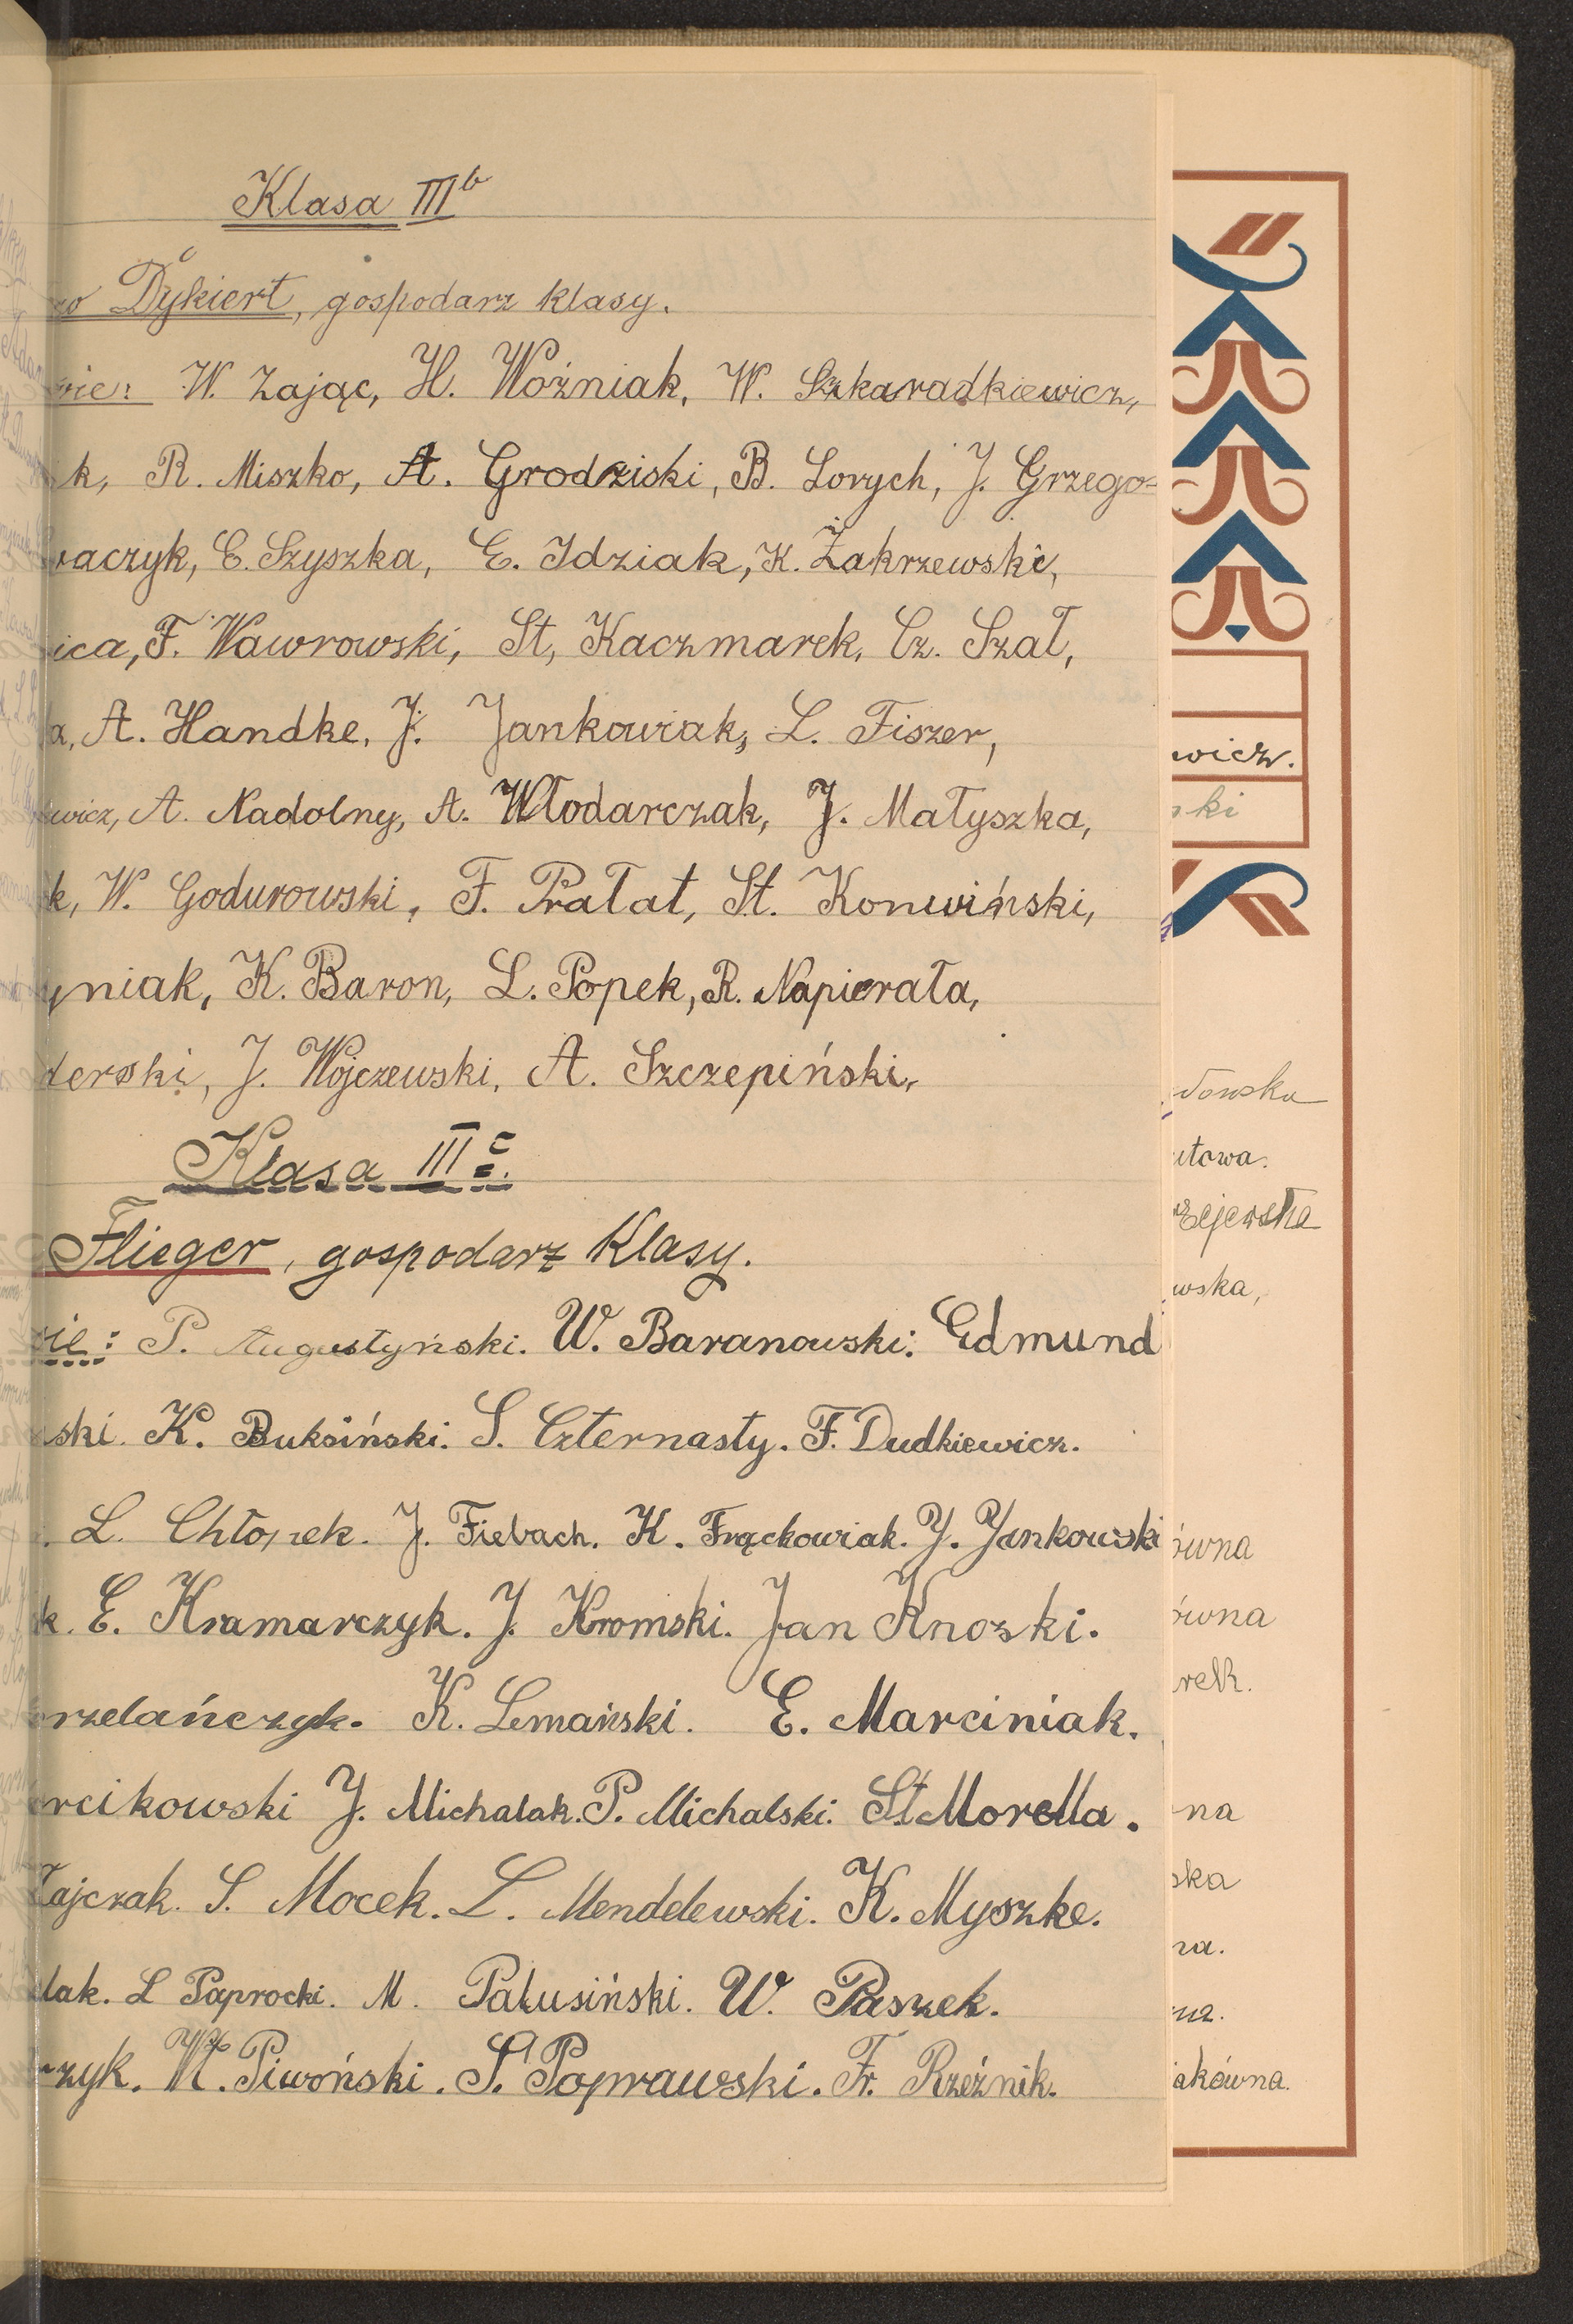 Klasa III b
Dykiert, gospodarz klasy.
W. Zając, H. Woźniak, W. Szkaradkiewicz,
k, R. Miszko, A. Grodziski, B. Lorych, J. Grzego-
raczyk, C. Szyszka, E. Idziak, K. Żakrzewski,
ica, F. Wawrowski, St, Kaczmarek, Cz. Szał,
a, A. Handke, J. Jankowiak, L. Fiszer,
wicz, A. Nadolny, A. Włodarczak, J. Małyszka,
k, W. Godurowski, F. Prałat, St. Konwiński,
yniak, K. Baron, L. Popek, R. Napierała,
derski, J. Wojczewski, A. Szczepiński,
Klasa III c.
Flieger, gospodarz klasy.
ie: P. Augustyński. W. Baranowski. Edmund
ski. K. Buksiński. S. Czternasty. F. Dudkiewicz.
. L. Chłopek. J. Fiebach. K. Frąckowiak. J. Jankowski
k. E. Kramarczyk. J. Kromski. Jan Knoski.
rzelańczyk. K. Lemański. E. Marciniak.
rcikowski J. Michalak. P. Michalski. St. Morella.
tajczak. S. Mocek. L. Mendelewski. K. Myszke.
lak. L Paprocki. M. Palusiński. W. Paszek.
zyk. W. Piwoński. S. Poprawski. Fr. Rzeźnik.
wicz.
ski
owska
utowa.
zejewska
wska,
ówna
ówna
rek.
na
ska
na.
na.
akówna.